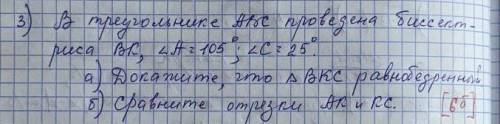 3) В треугольнике АВС проведена биссект-
риса ВК, ∠А=105°; ∠С=25°.
а) Докажите, что △ВКС равнобедренный
б) Сравните отрезки АК и КС. [6б]